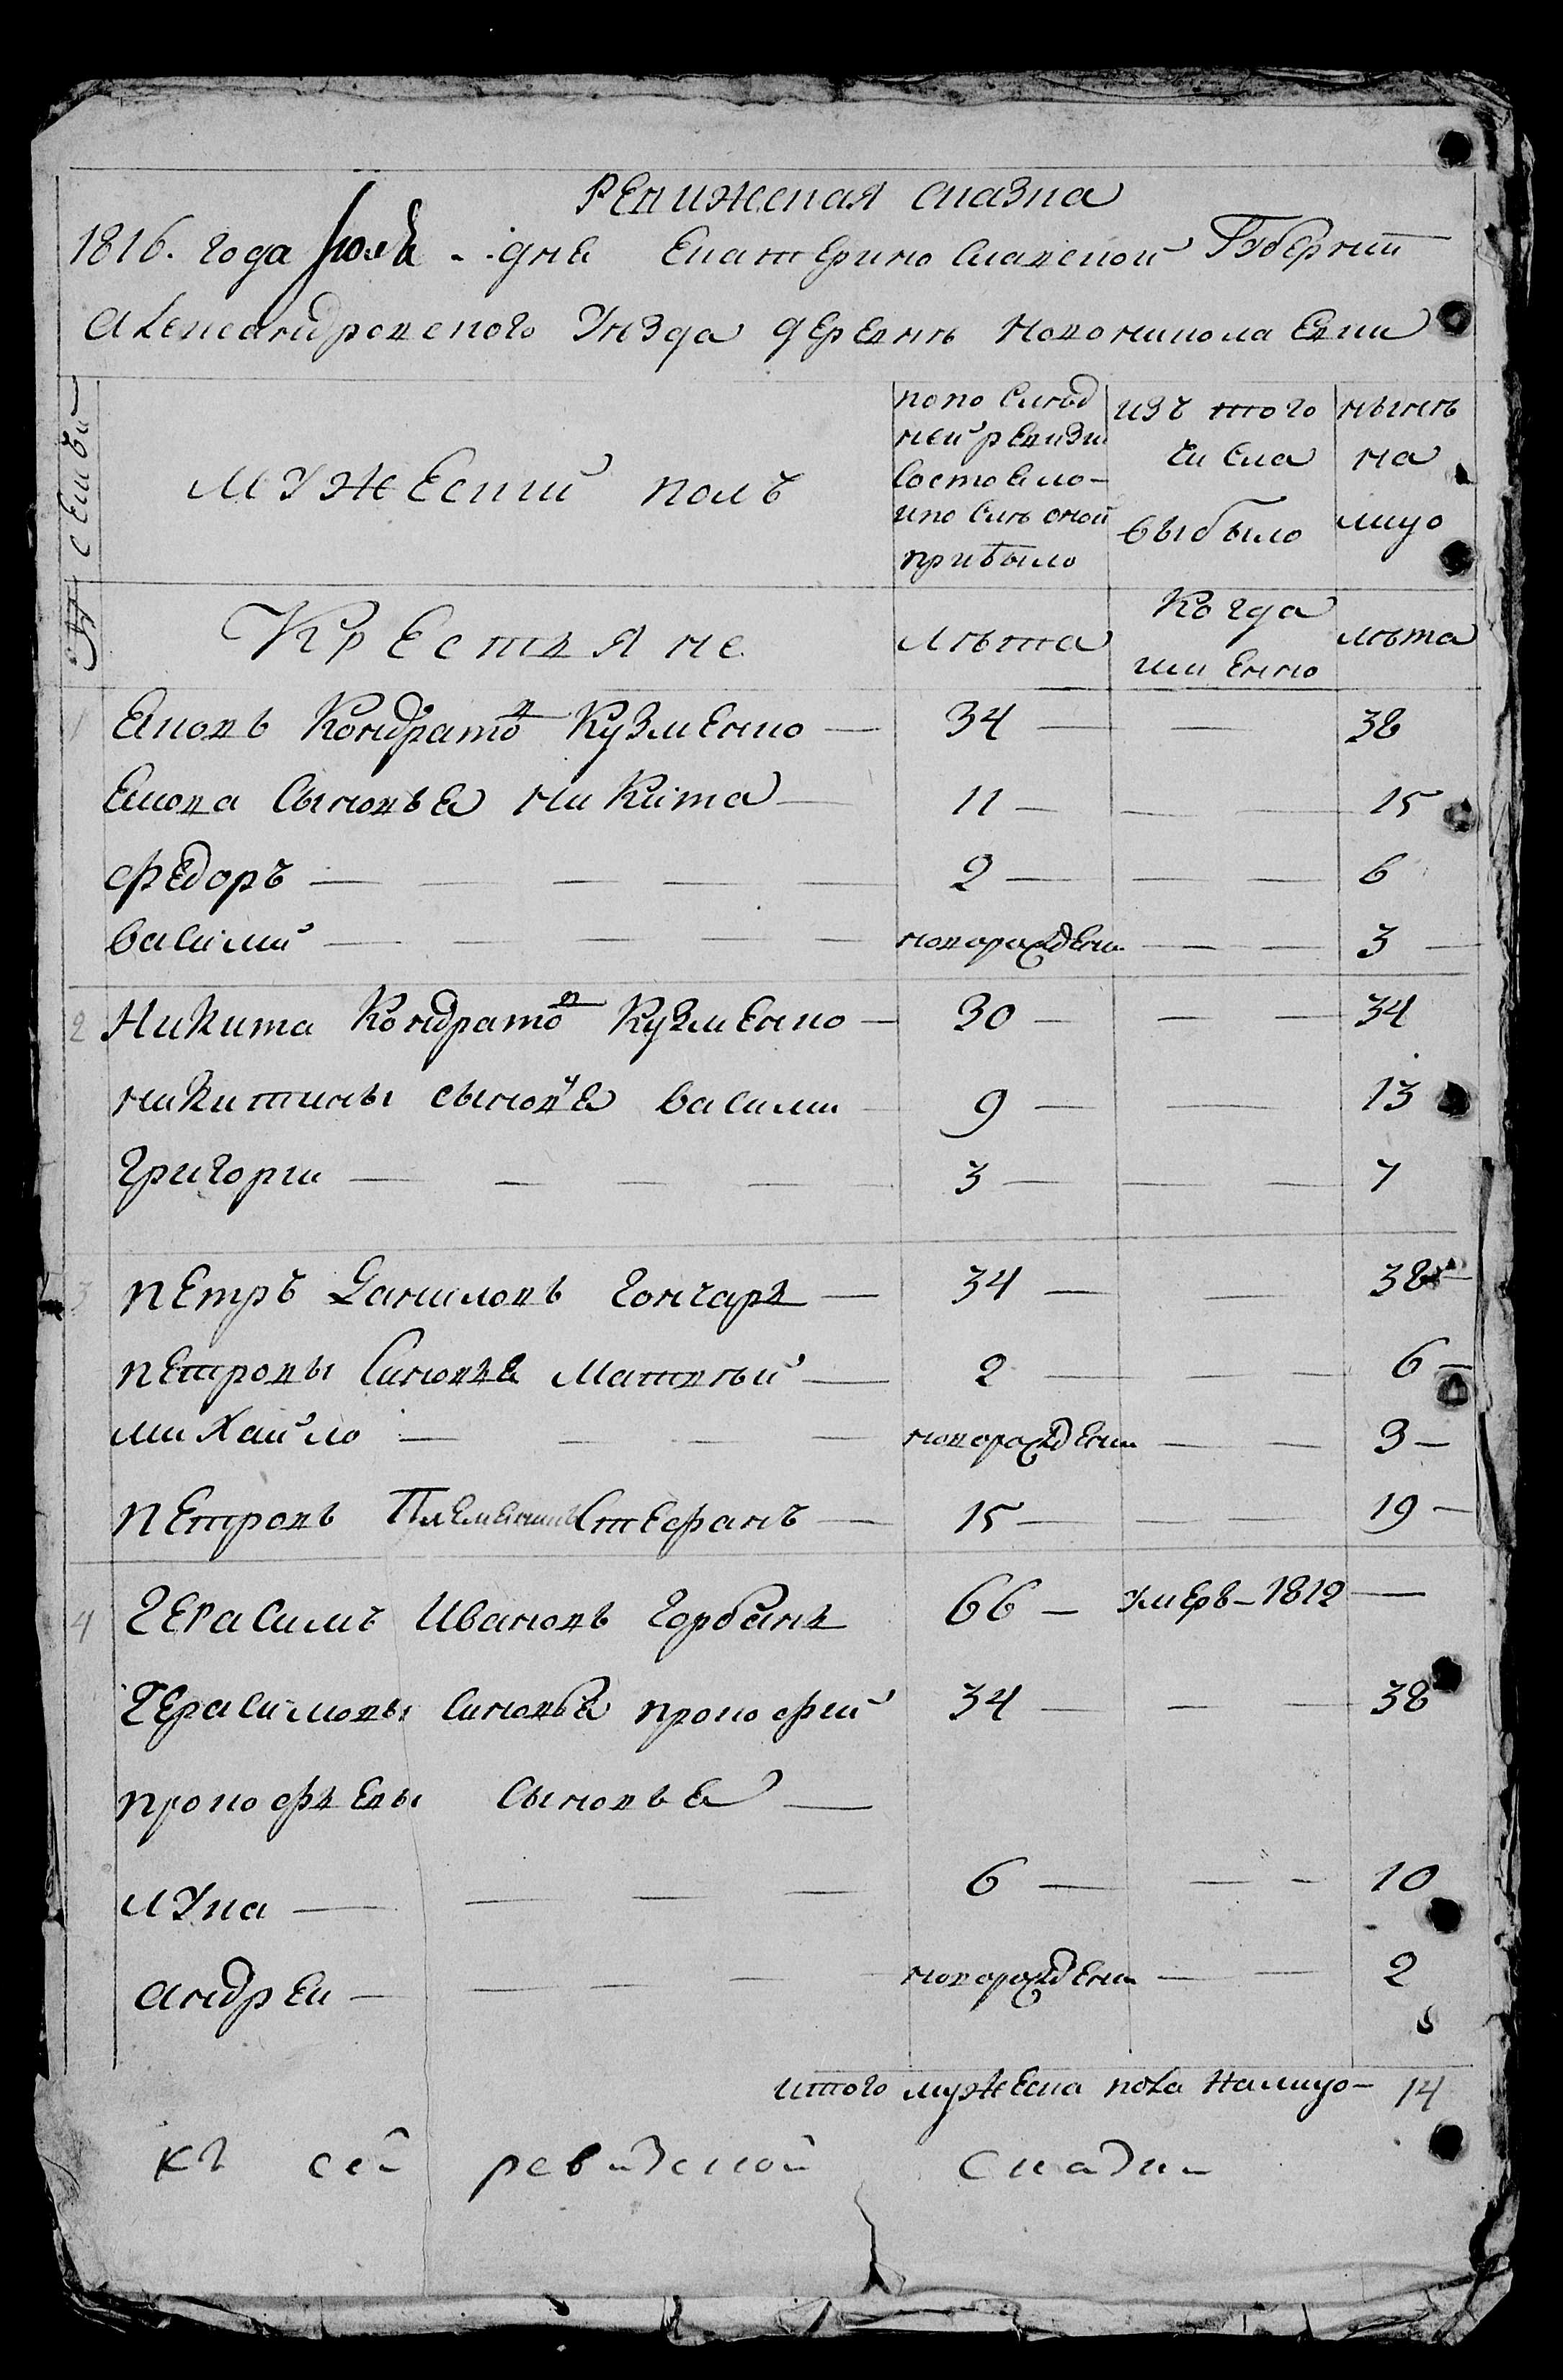 РЕВИЖСКАЯ СКАЗКА
1816. года Июля - дня Екатеринославской Губернии
Александровского Уезда деревни Новониколаевки
№ семьи
Мужеский полъ
по последней ревизии состояло и после оной прибыло
изъ того числа выбыло
ныне на лицо
Крестьяне
лѣта
Когда именно
лѣта
1 Яковъ Кондратов Кузменко — 34 — — 38
Якова Сыновья Никита — 11 — — 15
Федоръ — 2 — — 6
Василий — новорожден — — 3 —
2 Никита Кондратов Кузменко — 30 — — 34
Никитины сыновья Васили 9 — — 13
Григорги — 3 — — 7
3 Петръ Даниловъ Гончаръ — 34 — — 38 —
Петровы Синовья Матвѣй — 2 — — 6 —
Михайло — новорожден — — 3 —
Петровъ Племенникъ Стефанъ — 15 — — 19 —
4 Герасимъ Ивановъ Горбань 66 — умеръ — 1812 —
Герасимовы Синовья Прокофий 34 — — 38
Прокофьевы Сыновья —
Лука — 6 — — 10
Андреи — новорожден — — 2
итого мужеска пола налицо — 14
Къ сей ревизской Сказки